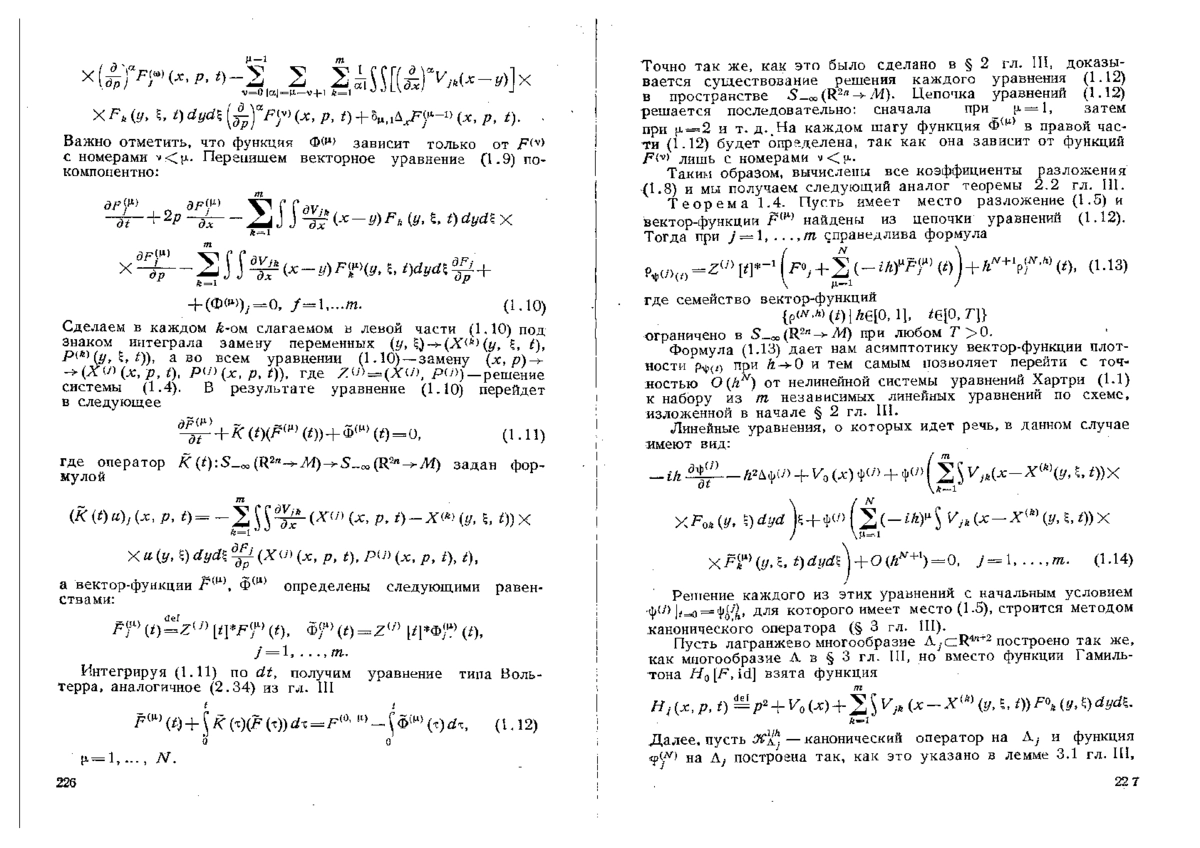 ×(∂/∂p)^α F_j^(ν) (x, p, t) − Σ_{ν=0}^{μ−1} Σ_{|α|=μ−ν+1} Σ_{k=1}^{m} 1/α! ∫∫[(∂/∂x)^α V_{jk}(x−y)]×
×F_k (y, ξ, t) dydξ (∂/∂p)^α F_j^(ν) (x, p, t) + δ_{μ,1}Δ_x F_j^(μ−1) (x, p, t).
Важно отметить, что функция Φ^(μ) зависит только от F^(ν)
с номерами ν<μ. Перепишем векторное уравнение (1.9) по-
компонентно:
∂F_j^(μ)/∂t + 2p ∂F_j^(μ)/∂x − Σ_{k=1}^{m} ∫∫ ∂V_{jk}/∂x (x−y) F_k (y, ξ, t) dydξ ×
× ∂F_j^(μ)/∂p − Σ_{k=1}^{m} ∫∫ ∂V_{jk}/∂x (x−y) F_k^(μ)(y, ξ, t)dydξ ∂F_j/∂p +
+(Φ^(μ))_j=0, j=1,...m. (1.10)
Сделаем в каждом k-ом слагаемом в левой части (1.10) под
знаком интеграла замену переменных (y, ξ)→(X^(k)(y, ξ, t),
P^(k)(y, ξ, t)), а во всем уравнении (1.10)—замену (x, p)→
→(X^(j) (x, p, t), P^(j) (x, p, t)), где Z^(j)=(X^(j), P^(j))—решение
системы (1.4). В результате уравнение (1.10) перейдет
в следующее
∂F̃^(μ)/∂t + K̃ (t)(F̃^(μ) (t))+Φ̃^(μ) (t)=0, (1.11)
где оператор K̃ (t):S_{−∞}(ℝ^{2n}→M)→S_{−∞}(ℝ^{2n}→M) задан фор-
мулой
(K̃ (t) u)_j (x, p, t)= −Σ_{k=1}^{m} ∫∫ ∂V_{jk}/∂x (X^(j) (x, p, t)−X^(k) (y, ξ, t)) ×
×u (y, ξ) dydξ ∂F_j/∂p (X^(j) (x, p, t), P^(j) (x, p, t), t),
а вектор-функции F̃^(μ), Φ̃^(μ) определены следующими равен-
ствами:
F̃_j^(μ) (t) =^{def} Z^(j) [t]*F_j^(μ) (t), Φ̃_j^(μ) (t)=Z^(j) [t]*Φ_j^(μ) (t),
j=1, ..., m.
Интегрируя (1.11) по dt, получим уравнение типа Воль-
терра, аналогичное (2.34) из гл. III
F̃^(μ) (t)+∫_0^t K̃ (τ)(F̃ (τ)) dτ=F^(0, μ)−∫_0^t Φ̃^(μ) (τ) dτ, (1.12)
μ=1, ..., N.
226
Точно так же, как это было сделано в § 2 гл. III, доказы-
вается существование решения каждого уравнения (1.12)
в пространстве S_{−∞}(ℝ^{2n}→M). Цепочка уравнений (1.12)
решается последовательно: сначала при μ=1, затем
при μ=2 и т. д. На каждом шагу функция Φ̃^(μ) в правой час-
ти (1.12) будет определена, так как она зависит от функций
F^(ν) лишь с номерами ν<μ.
Таким образом, вычислены все коэффициенты разложения
(1.8) и мы получаем следующий аналог теоремы 2.2 гл. III.
Теорема 1.4. Пусть имеет место разложение (1.5) и
вектор-функции F̃^(μ) найдены из цепочки уравнений (1.12).
Тогда при j=1, ..., m справедлива формула
ρ_{ψ^(j)(t)}=Z^(j) [t]*^{−1} (F^0_j+Σ_{μ=1}^{N} (−ih)^μ F̃_j^(μ) (t))+h^{N+1}ρ_j^(N,h) (t), (1.13)
где семейство вектор-функций
{ρ^(N,h) (t) | h∈[0, 1], t∈[0, T]}
ограничено в S_{−∞}(ℝ^{2n}→M) при любом T>0.
Формула (1.13) дает нам асимптотику вектор-функции плот-
ности ρ_{ψ(t)} при h→0 и тем самым позволяет перейти с точ-
ностью O(h^N) от нелинейной системы уравнений Хартри (1.1)
к набору из m независимых линейных уравнений по схеме,
изложенной в начале § 2 гл. III.
Линейные уравнения, о которых идет речь, в данном случае
имеют вид:
−ih ∂ψ^(j)/∂t −h²Δψ^(j)+V_0 (x) ψ^(j)+ψ^(j)(Σ_{k=1}^{m} ∫V_{jk}(x−X^(k)(y, ξ, t))×
×F_{0k} (y, ξ) dyd)ξ+ψ^(j) (Σ_{μ=1}^{N}(−ih)^μ ∫ V_{jk} (x−X^(k) (y, ξ, t))×
×F̃_k^(μ) (y, ξ, t)dydξ)+O(h^{N+1})=0, j=1, ..., m. (1.14)
Решение каждого из этих уравнений с начальным условием
ψ^(j)|_{t=0}=ψ^(j)_{0,h}, для которого имеет место (1.5), строится методом
канонического оператора (§ 3 гл. III).
Пусть лагранжево многообразие Λ_j⊂ℝ^{4n+2} построено так же,
как многообразие Λ в § 3 гл. III, но вместо функции Гамиль-
тона H_0 [F, id] взята функция
H_j (x, p, t) =^{def} p²+V_0 (x)+Σ_{k=1}^{m} ∫V_{jk} (x−X^(k) (y, ξ, t)) F^0_k (y, ξ) dydξ.
Далее, пусть 𝒦^{1/h}_{Λ_j} — канонический оператор на Λ_j и функция
φ_j^(N) на Λ_j построена так, как это указано в лемме 3.1 гл. III,
22 7